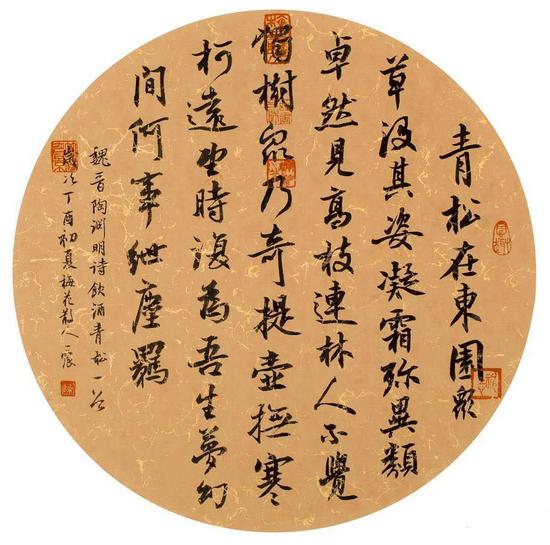 青松在東園眾
草没其姿凝霜殄異類
卓然見高枝連林人不覺
獨樹眾乃奇提壺撫寒
柯遠望時復為吾生夢幻
間何事紲塵羈
魏晉陶淵明詩飲酒青松一首
歲次丁酉初夏梅花散人